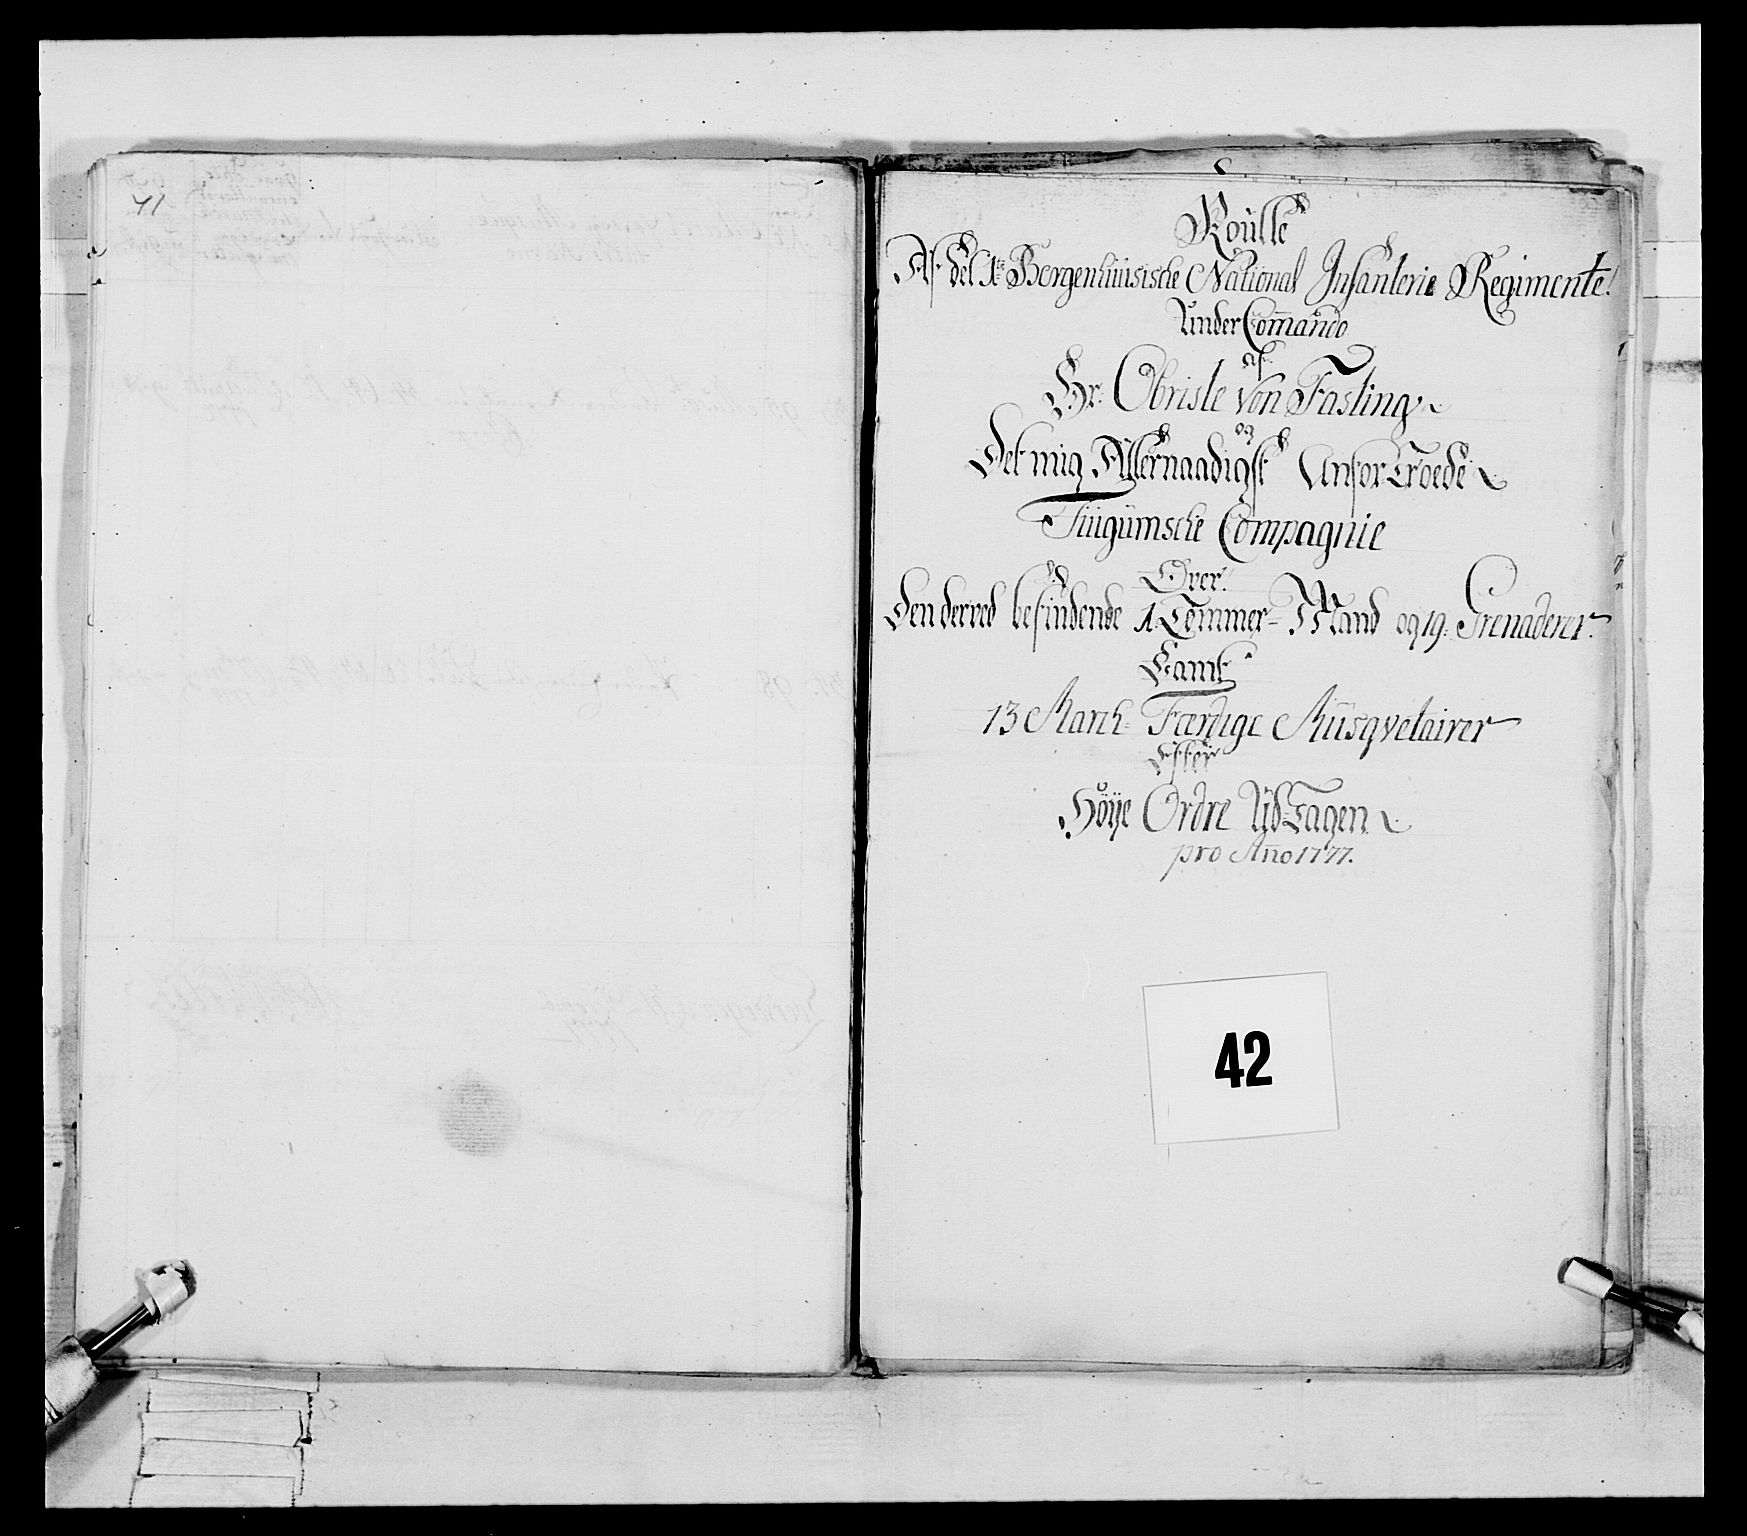 41
Roulle
Af Det 1te Bergenhüusische National Infanterie Regimente
Under Commando
af
Hr. Obriste von Fasting
og
Det mig Allernaadigst Anfortroede
Füigümsche Compagnie
Over
Den derved befindende 1 Temmer-Mand og 19. Grenaderer
Samt
13 March-Færdige Müsqvetairer
Efter
Høye Ordre UdTagen
pro Año 1777.
42